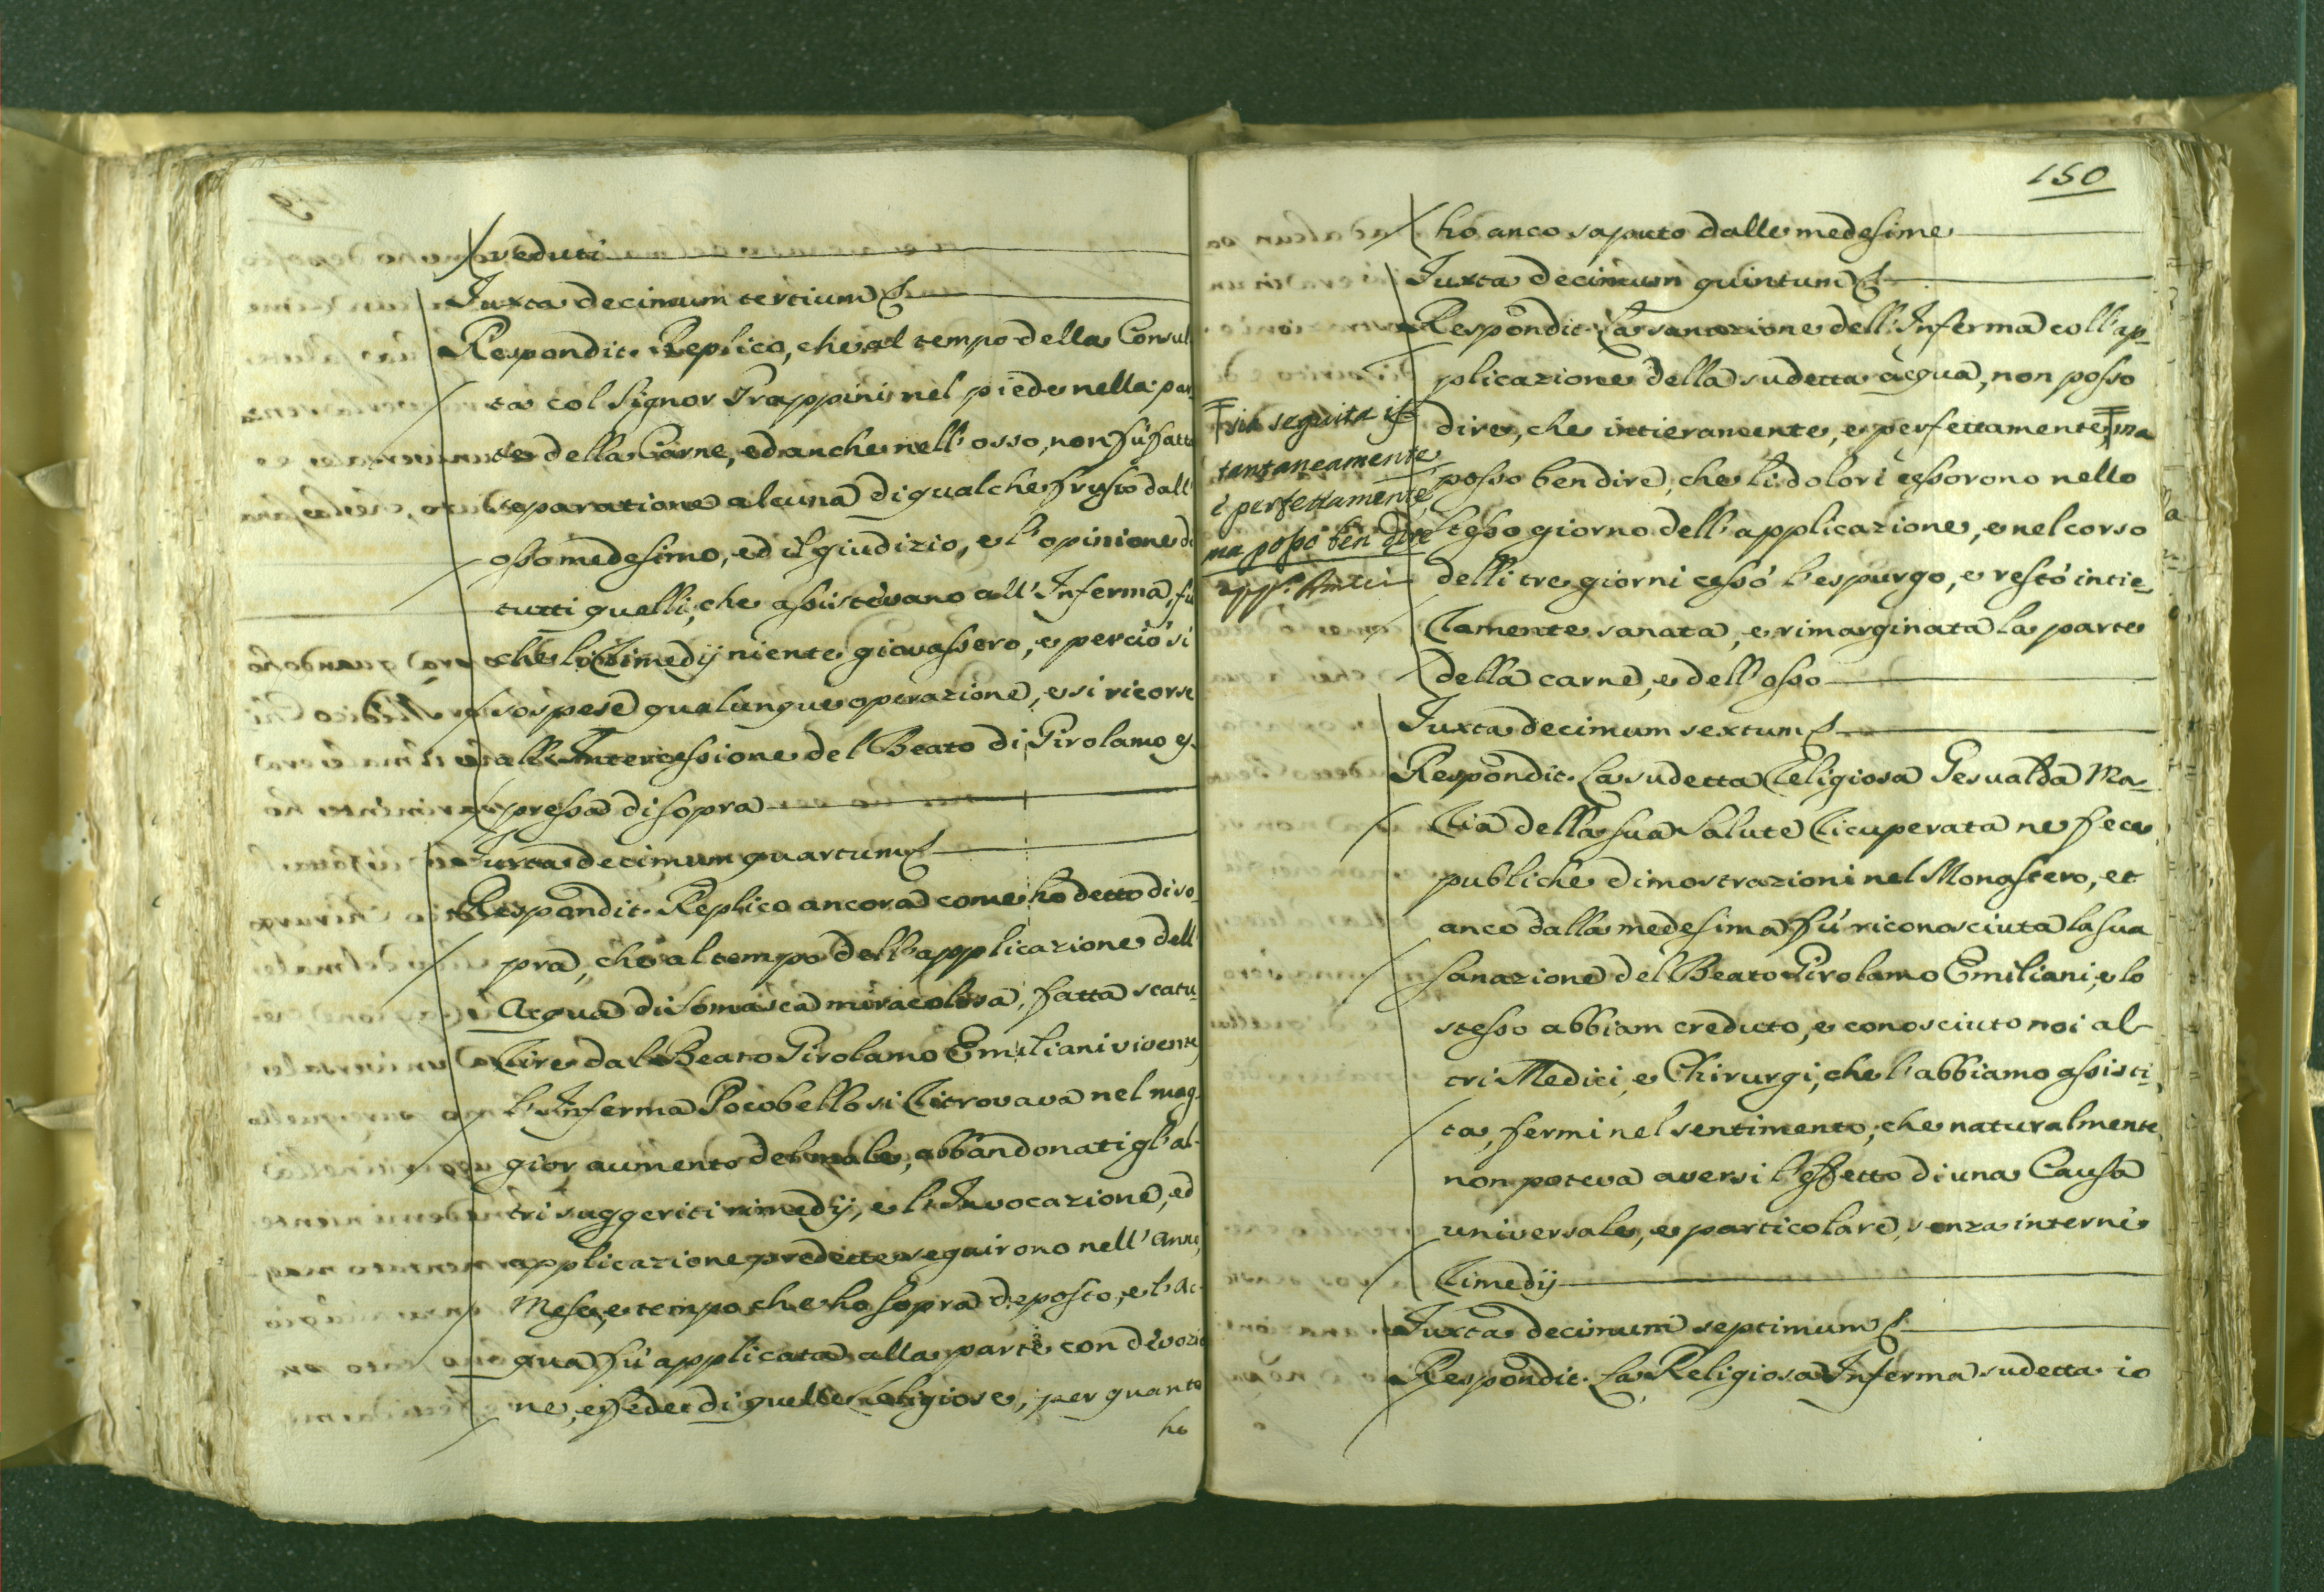 veduti
Juxta decimum tertium
Respondit. Replico, che al tempo della Consul
ta col Signor Trappini nel piede nella par
te della Carne, ed anche nell'osso, non fù fatta
separatione alcuna di qualche frusto dall'
osso medesimo, ed il giudizio, e l'opinione di
tutti quelli, che assistevano all'Inferma, fù
che li Rimedij niente giovassero, e perciò si
sospese qualunque operazione, e si ricorse
all'Intercessione del Beato di Girolamo es-
pressa di sopra
Juxta decimum quartum
Respondit. Replico ancora come hò detto di so-
pra, che al tempo dell'applicazione dell'
Acqua di Somasca miracolosa, fatta scatu-
rire dal Beato Girolamo Emiliani vivente
l'Inferma Pocobello si ritrovava nel mag-
gior aumento del male, abbandonati gl'al-
tri suggeriti rimedij, e l'Invocazione, ed
applicazione predette seguirono nell'Anno,
Mese, e tempo che ho sopra deposto, e l'Ac-
qua fù applicata alla parte con devozio
ne, e fede di quelle Religiose, per quanto
ho
150
ho anco saputo dalle medesime
Juxta decimum quintum
Respondit. La sanazione dell'Inferma coll'ap-
plicazione della sudetta acqua, non posso
dire, che intieramente, e perfettamente ma
posso ben dire, che li dolori cessorono nello
stesso giorno dell'applicazione, e nel corso
delli tre giorni cessò l'espurgo, e restò intie-
ramente sanata, e rimarginata la parte
della carne, e dell'osso
sia seguita is
tantaneamente
e perfettamente
ma posso ben dire
Juxta decimum sextum
Respondit. La sudetta Religiosa Gesualda Ma-
ria della sua salute ricuperata ne fece
publiche dimostrazioni nel Monastero, et
anco dalla medesima fù riconosciuta la sua
sanazione del Beato Girolamo Emiliani, e lo
stesso abbiam creduto, e conosciuto noi al-
tri Medici, e Chirurgi, che l'abbiamo assisti-
ta, fermi nel sentimento, che naturalmente
non poteva aversi l'effetto di una Causa
universale, e particolare, senza interni
rimedij
Juxta decimum septimum
Respondit. La Religiosa Inferma sudetta io